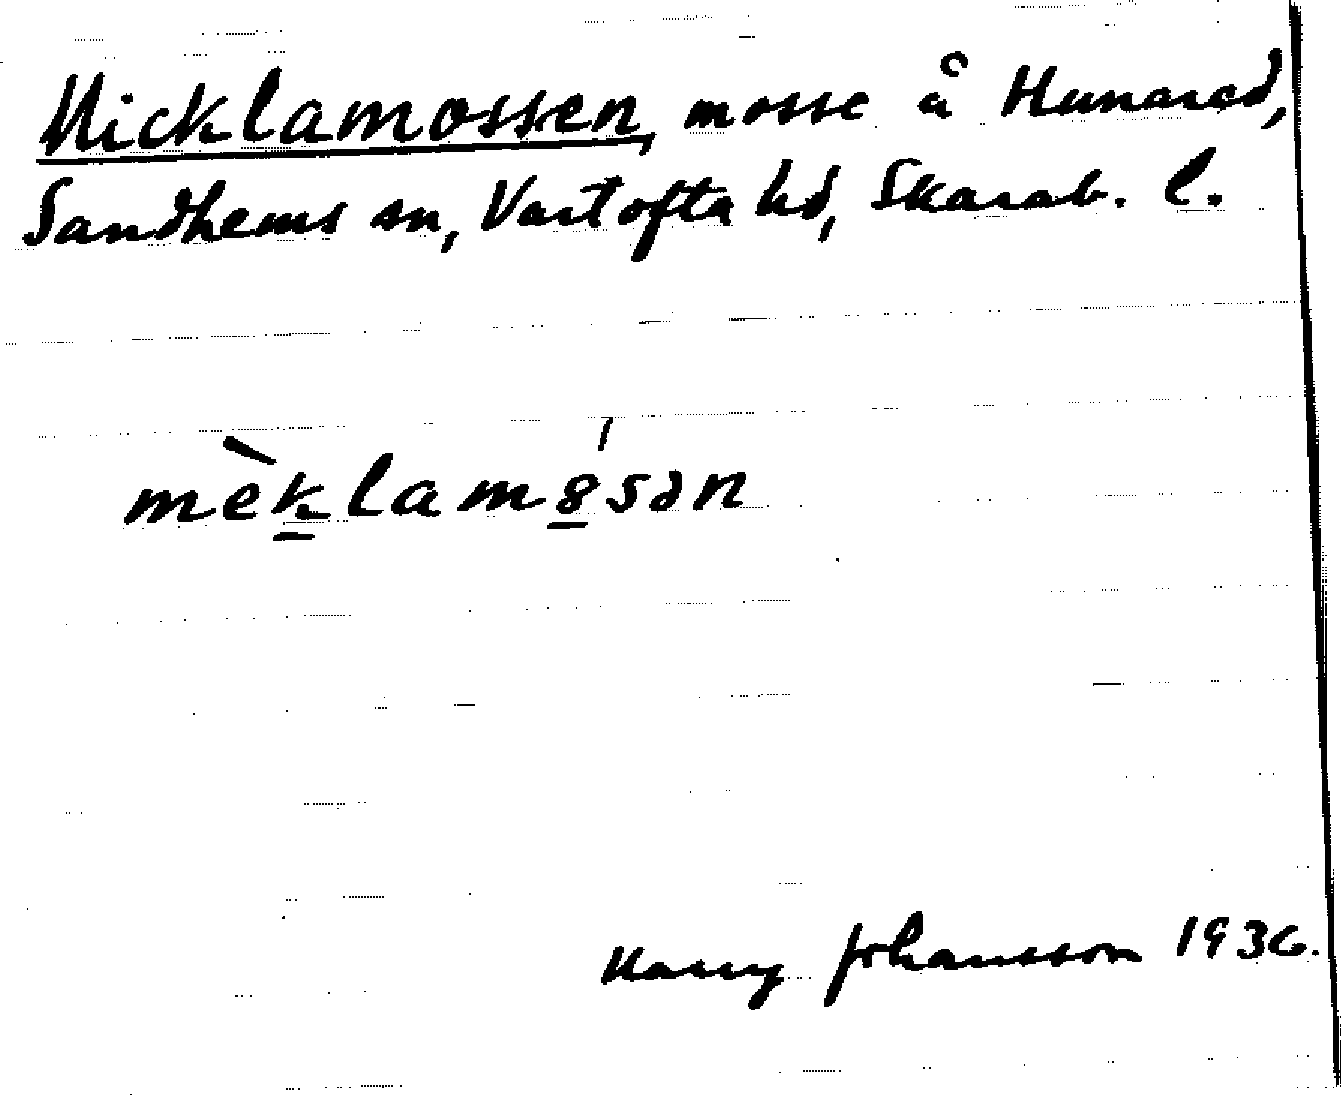 Micklamossen, mosse å Hunared,
Sandhems sn, Vartofta hd, Skarab. l.
mèk̲lamó̲sən
Harry Johansson 1936.